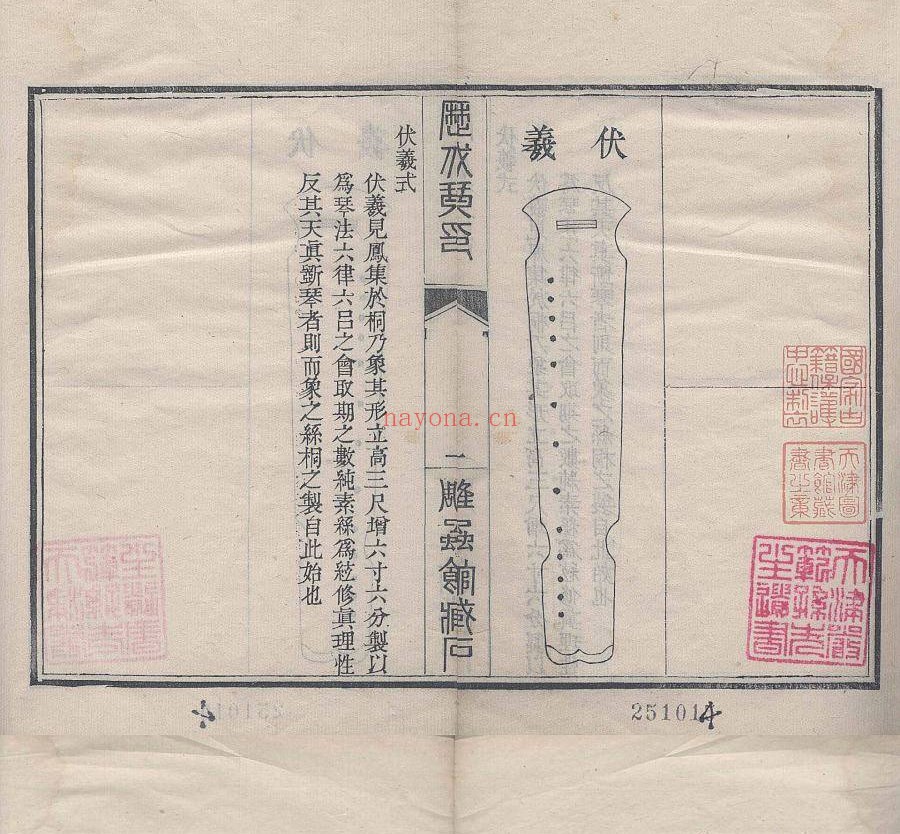 伏羲
歷代琴式
一
雕蟲館藏石
伏羲式
伏羲見鳳集於桐乃象其形立高三尺增六寸六分製以
爲琴法六律六呂之會取期之數純素絲爲絃修眞理性
反其天眞斵琴者則而象之絲桐之製自此始也
國家古籍保護中心監制
天津圖書館藏書之章
天津
之遺書
nayona.cn
251014